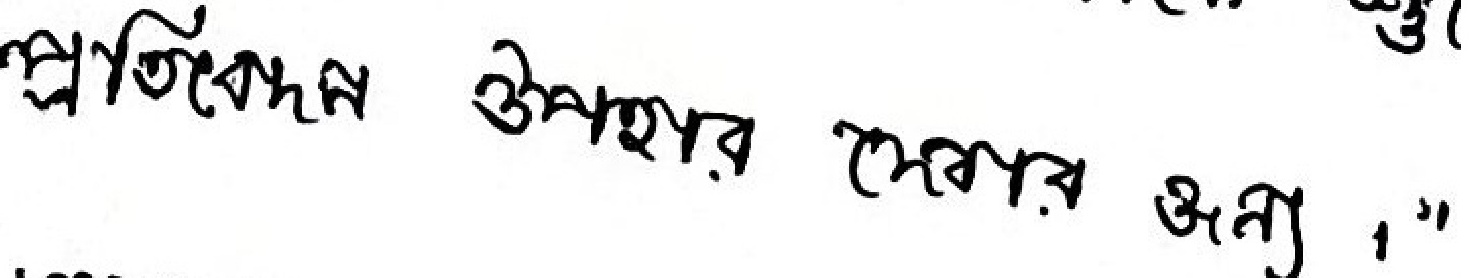 প্রতিবেদন উপহার দেবার জন্য।"